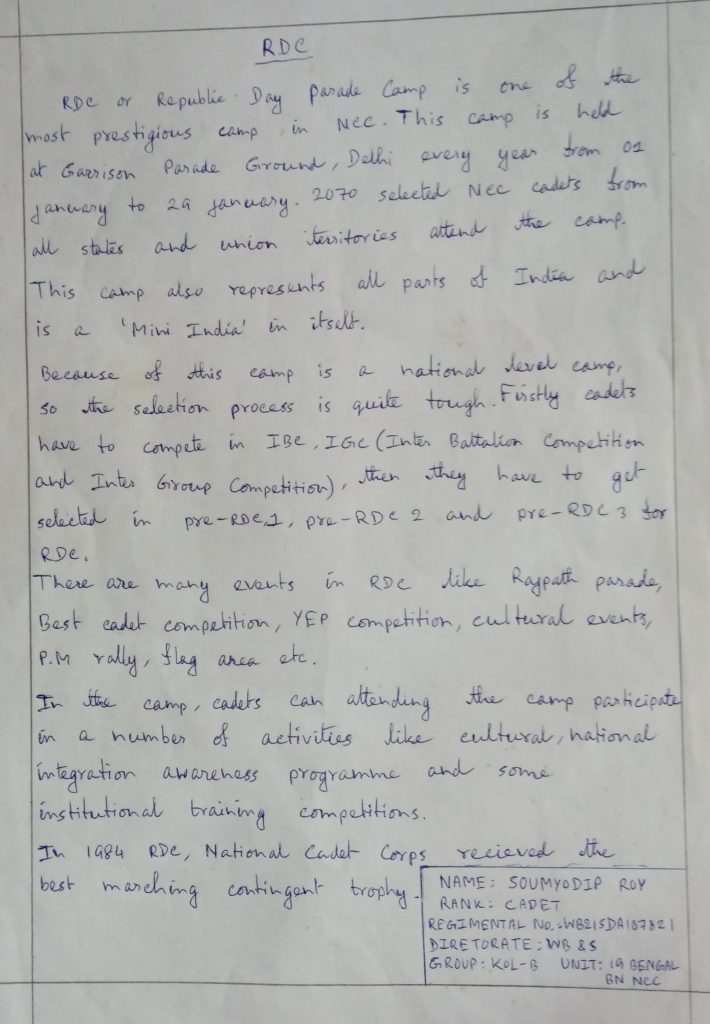 RDC
RDC or Republic Day parade Camp is one of the
most prestigious camp in NCC. This camp is held
at Garrison Parade Ground, Delhi every year from 01
January to 29 january. 2070 selected NCC cadets from
all states and union territories attend the camp.
This camp also represents all parts of India and
is a 'Mini India' in itself.
Because of this camp is a national level camp,
so the selection process is quite tough. Firstly cadets
have to compete in IBC, IGC (Inter Battalion Competition
and Inter Group Competition), then they have to get
selected in pre-RDC 1, pre-RDC 2 and pre-RDC 3 for
RDC.
There are many events in RDC like Rajpath parade,
Best cadet competition, YEP competition, cultural events,
P.M rally, flag area etc.
In the camp, cadets can attending the camp participate
in a number of activities like cultural, national
integration awareness programme and some
institutional training competitions.
In 1984 RDC, National Cadet Corps recieved the
best marching contingent trophy.
NAME: SOUMYODIP ROY
RANK: CADET
REGIMENTAL No.:WB21SDA107821
DIRETORATE: WB & S
GROUP: KOL-B UNIT: 19 BENGAL
BN NCC